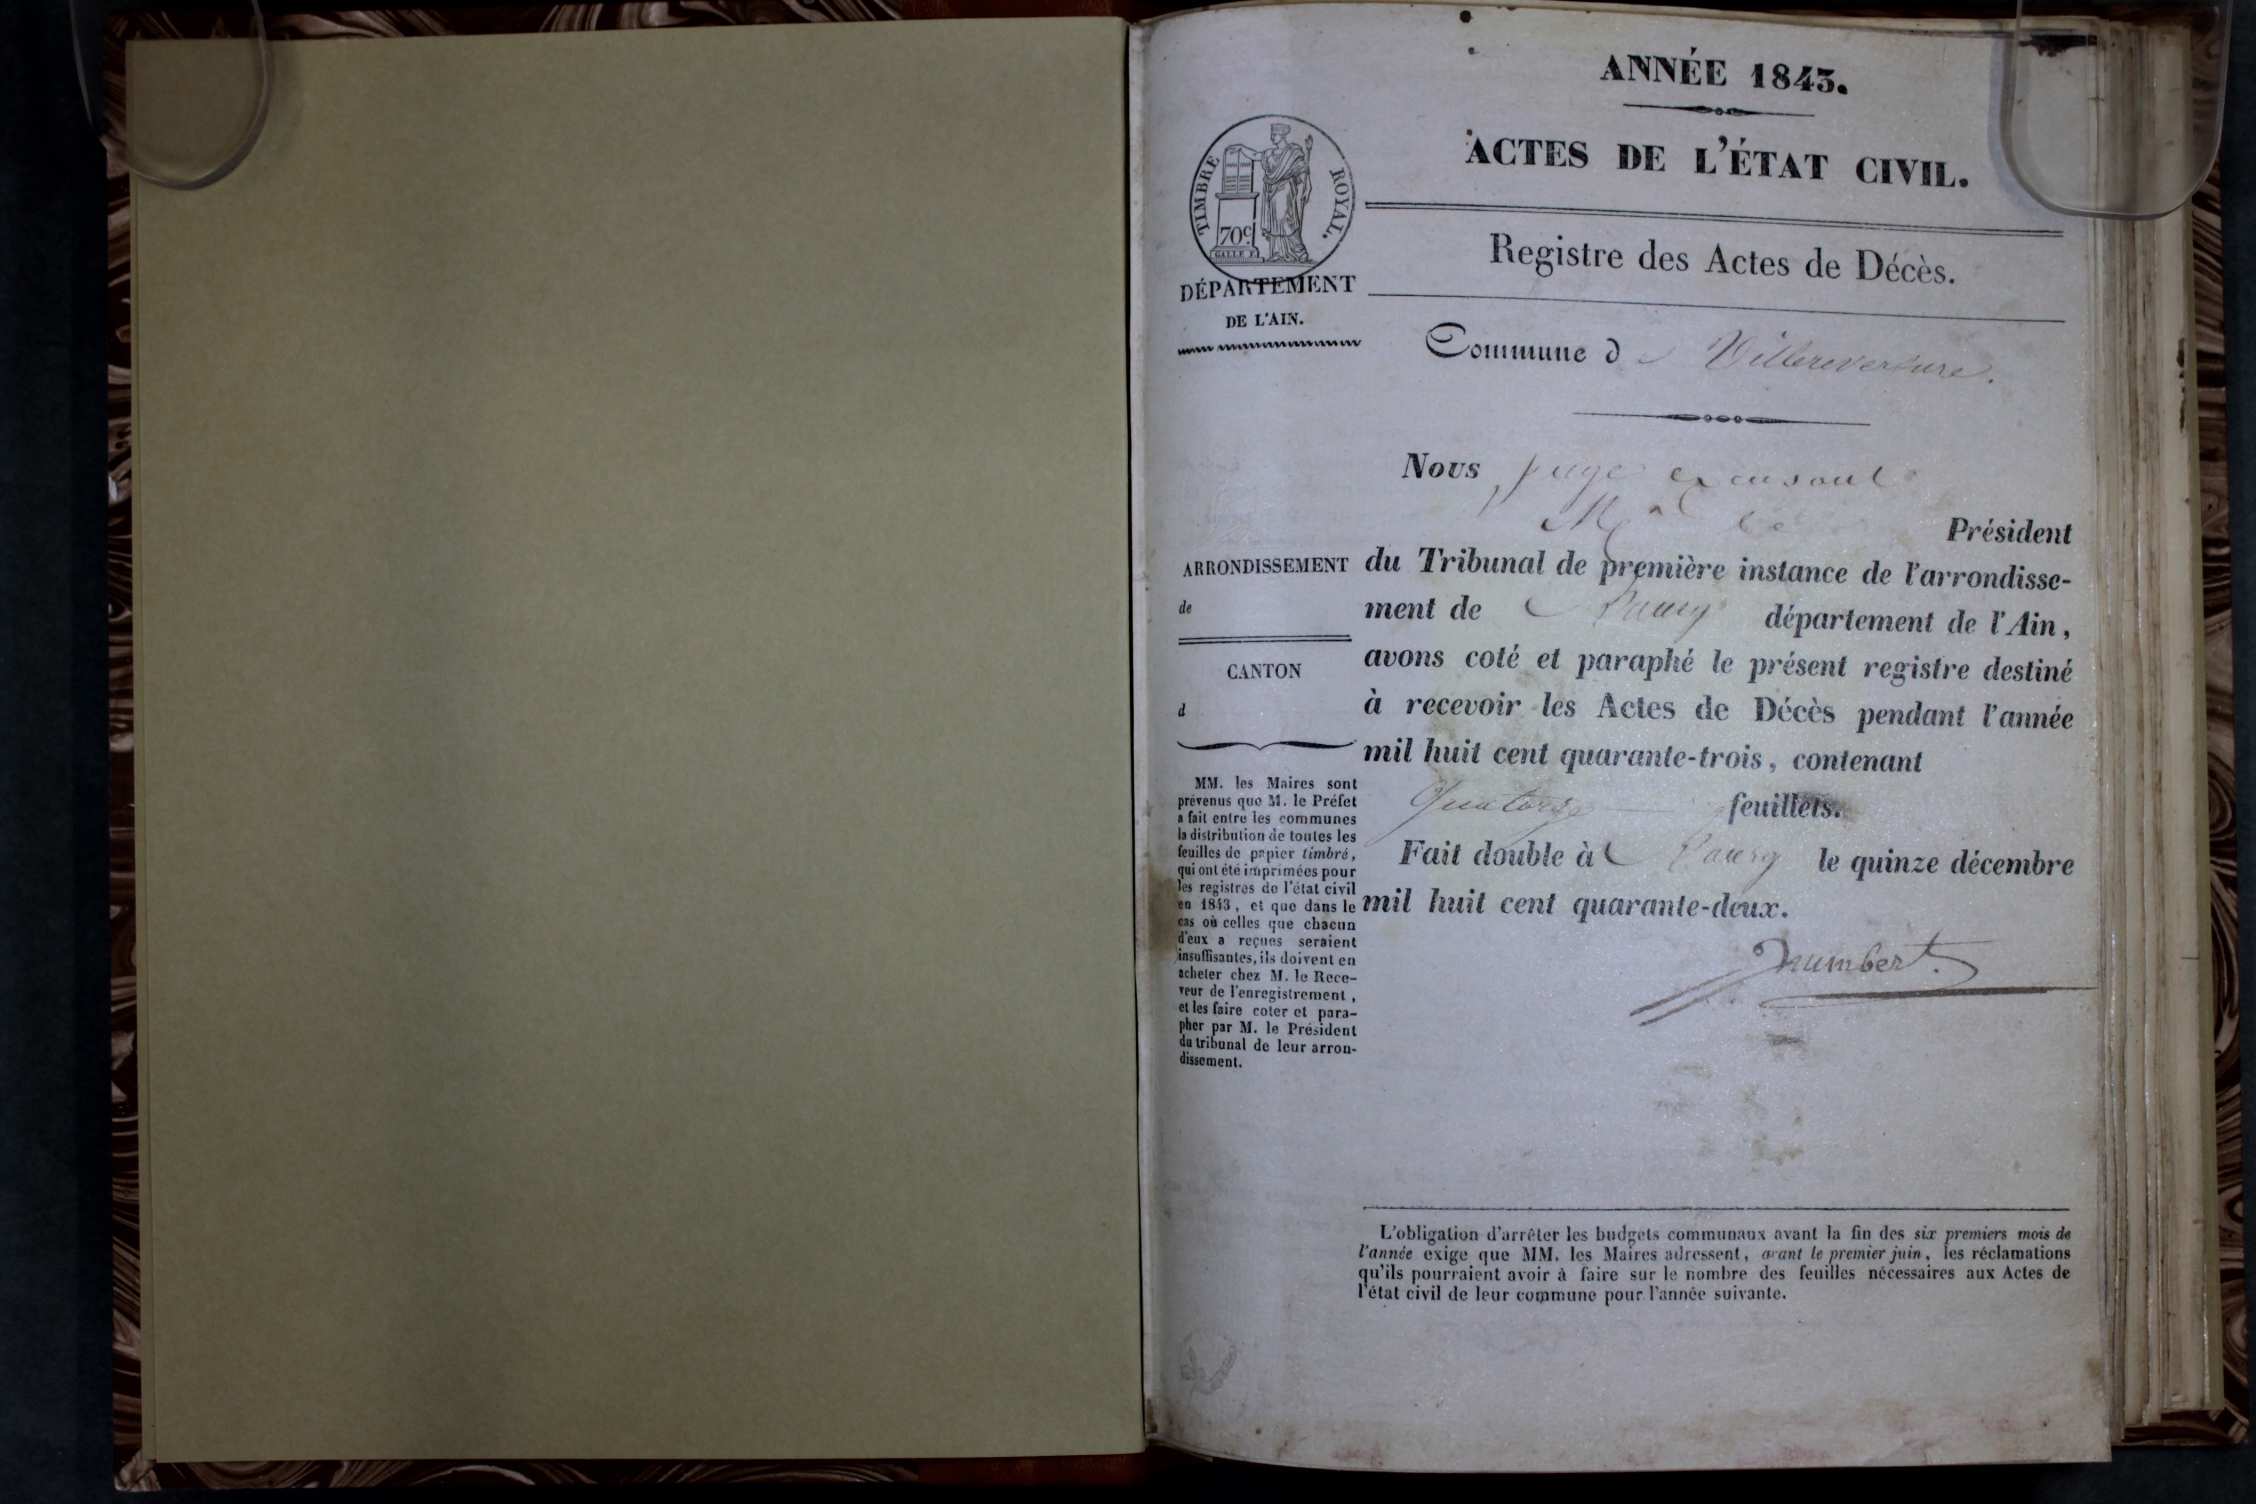 ANNÉE 1843.
ACTES DE L'ÉTAT CIVIL.
TIMBRE ROYAL.
70c
GALLE F.
DÉPARTEMENT
DE L'AIN.
Registre des Actes de Décès.
Commune de Villereversure.
Nous juge
Président
du Tribunal de première instance de l'arrondisse-
ment de Bourg département de l'Ain,
avons coté et paraphé le présent registre destiné
à recevoir les Actes de Décès pendant l'année
mil huit cent quarante-trois, contenant
Quatorze feuillets.
Fait double à Bourg le quinze décembre
mil huit cent quarante-deux.
humbert.
ARRONDISSEMENT
de
CANTON
d
MM. les Maires sont
prévenus que M. le Préfet
a fait entre les communes
la distribution de toutes les
feuilles de papier timbré,
qui ont été imprimées pour
les registres de l'état civil
en 1843, et que dans le
cas où celles que chacun
d'eux a reçues seraient
insuffisantes, ils doivent en
acheter chez M. le Rece-
veur de l'enregistrement,
et les faire coter et para-
pher par M. le Président
du tribunal de leur arron-
dissement.
L'obligation d'arrêter les budgets communaux avant la fin des six premiers mois de
l'année exige que MM. les Maires adressent, avant le premier juin, les réclamations
qu'ils pourraient avoir à faire sur le nombre des feuilles nécessaires aux Actes de
l'état civil de leur commune pour l'année suivante.